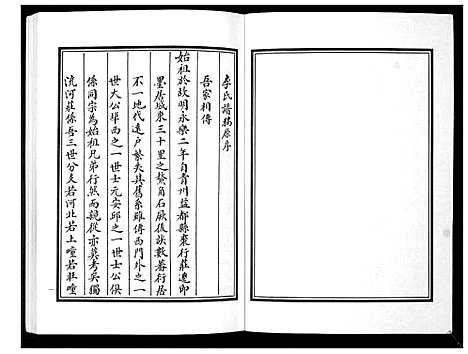 李氏譜稿原序
吾家相傳
始祖於故明永樂二年自青州益都縣棗行莊遷卽
墨居城東三十里之鰲角石厥後族數蕃衍居
不一地代遠戶繁失其舊系雖傳西門外之一
世大公埠西之一世士元安邱之一世士公俱
係同宗為始祖兄弟行然而親從亦莫考矣獨
流河莊係吾三世分支若河北若上疃若莊疃